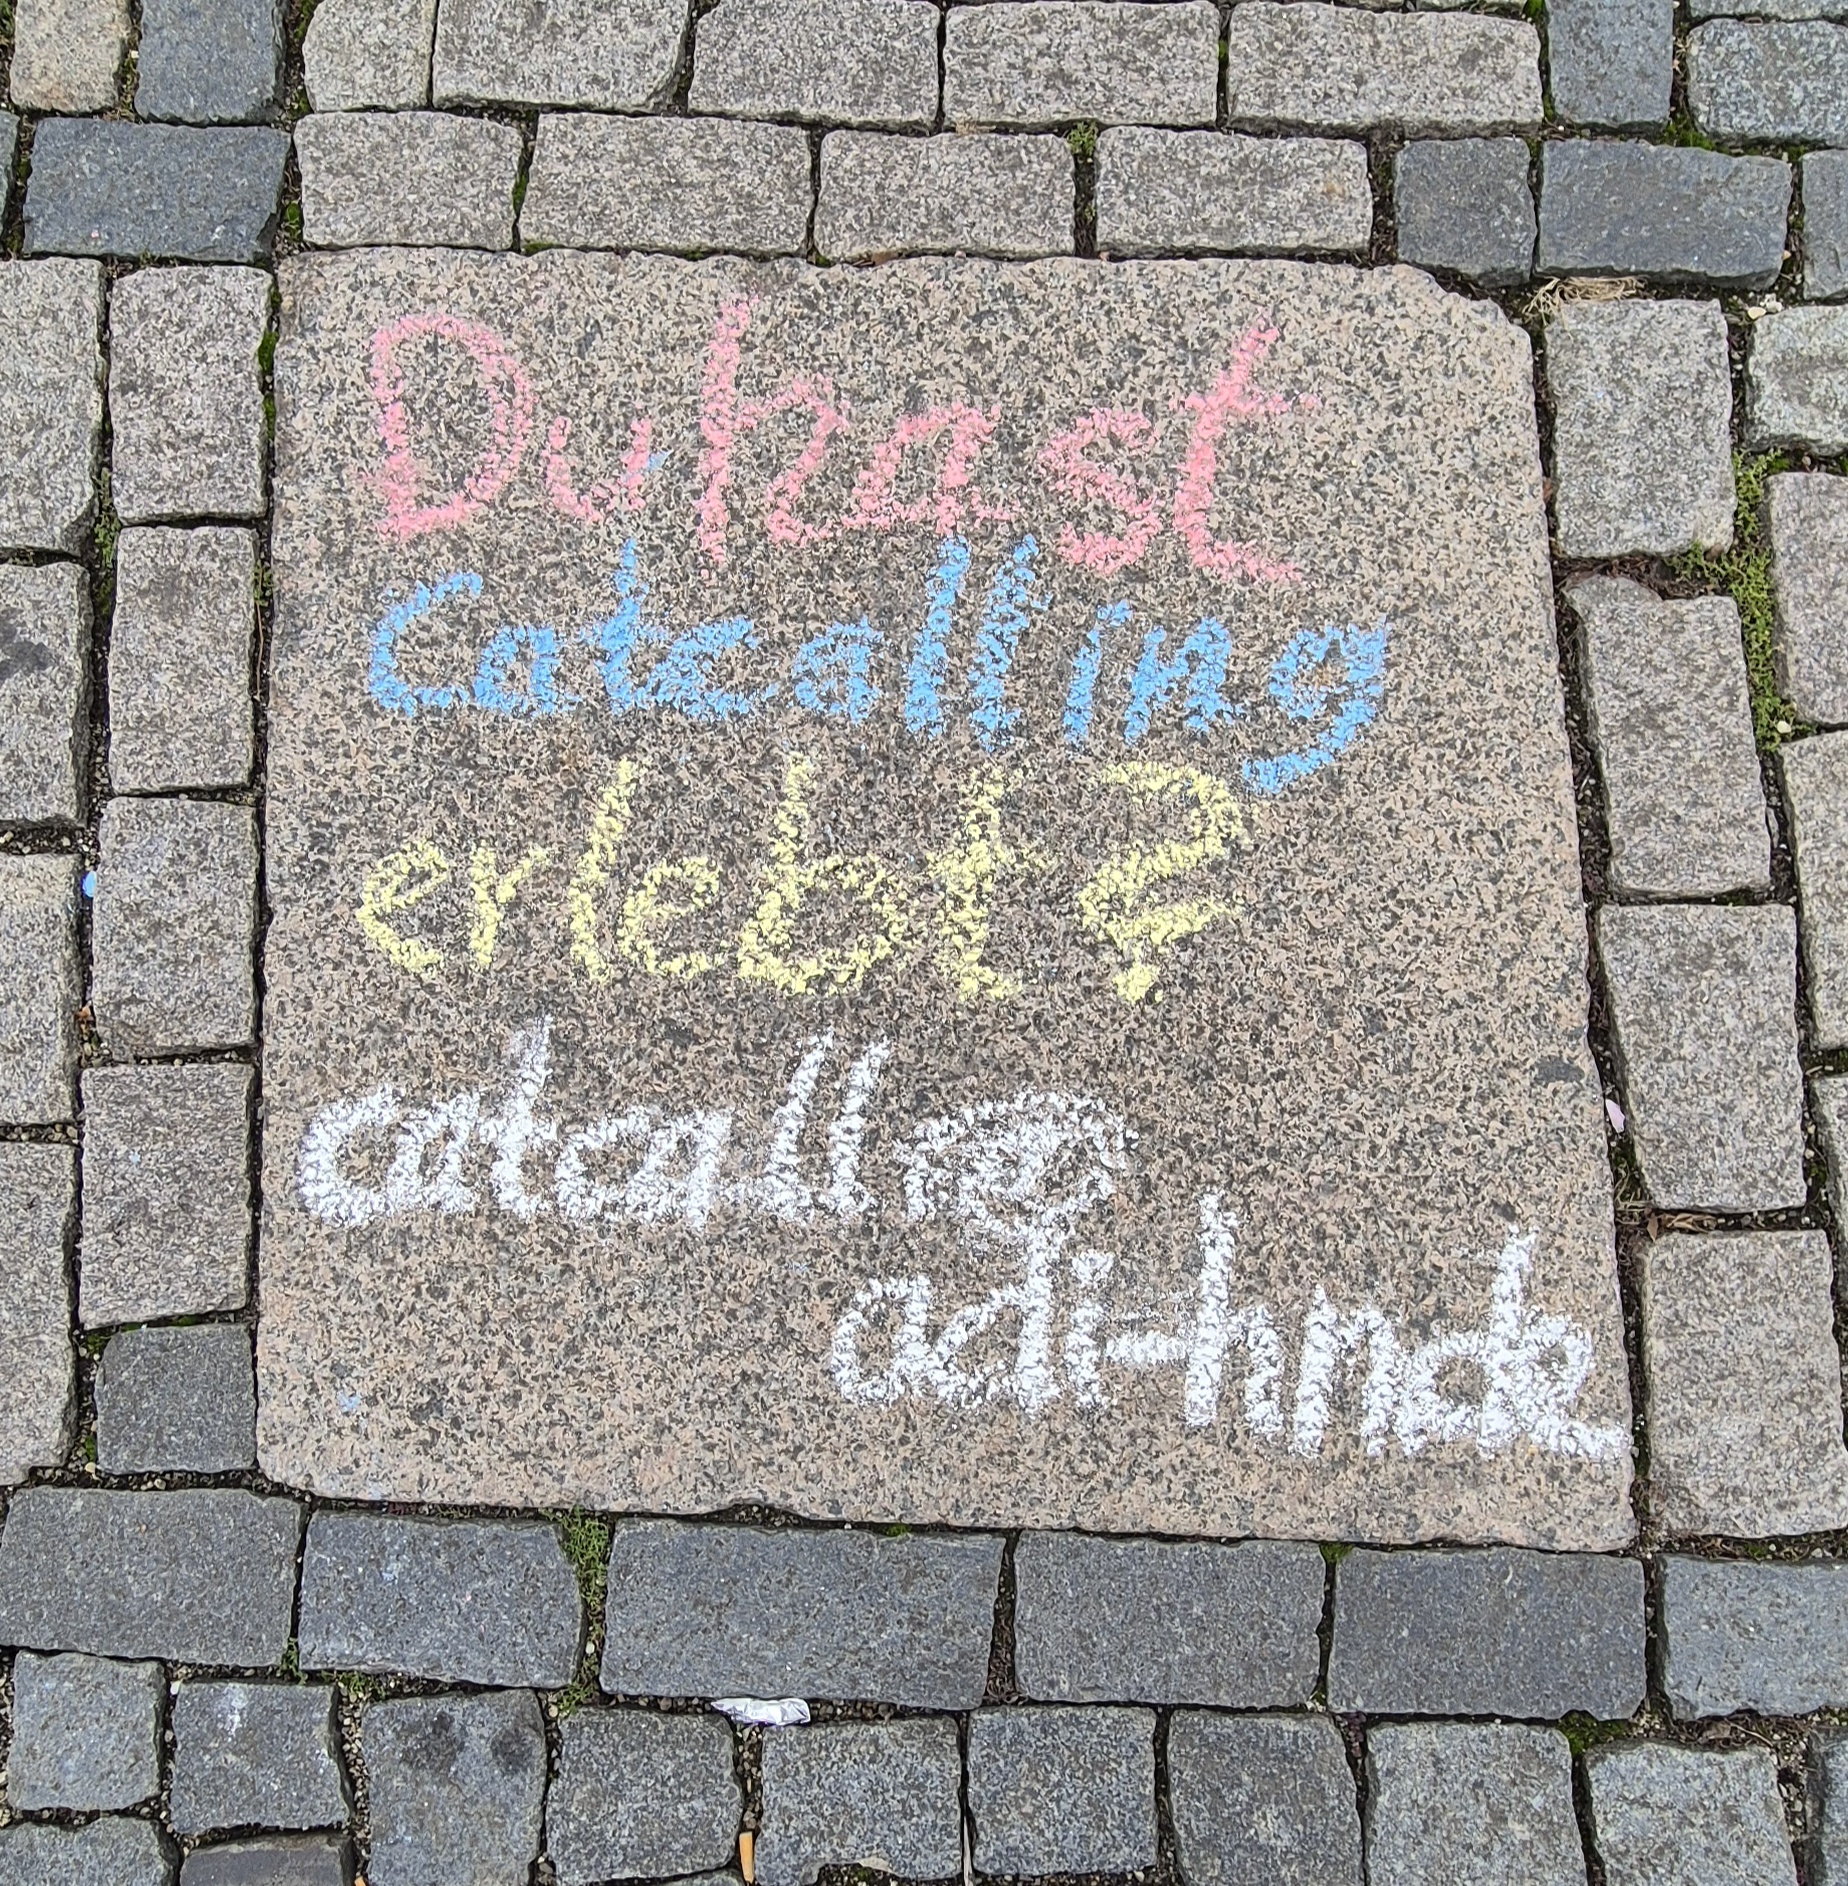 Du hast
Catcalling
erlebt?
catcall@
adi-hn.de